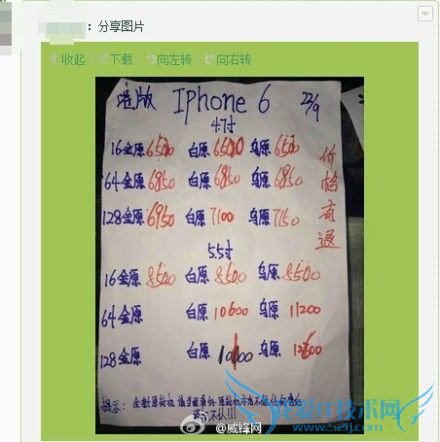 ：分享图片
收起 下载 向左转 向右转
港版 Iphone 6 22/9
4.7寸
16金原6500 白原6500 乌原6500
64金原6850 白原6850 乌原6850
128金原6950 白原7100 乌原7150
价格高退
5.5寸
16金原8500 白原8500 乌原8500
64金原 白原10600 乌原11200
128金原 白原 乌原
提示：
@威锋网
我爱IT技术网
www.52ij.com